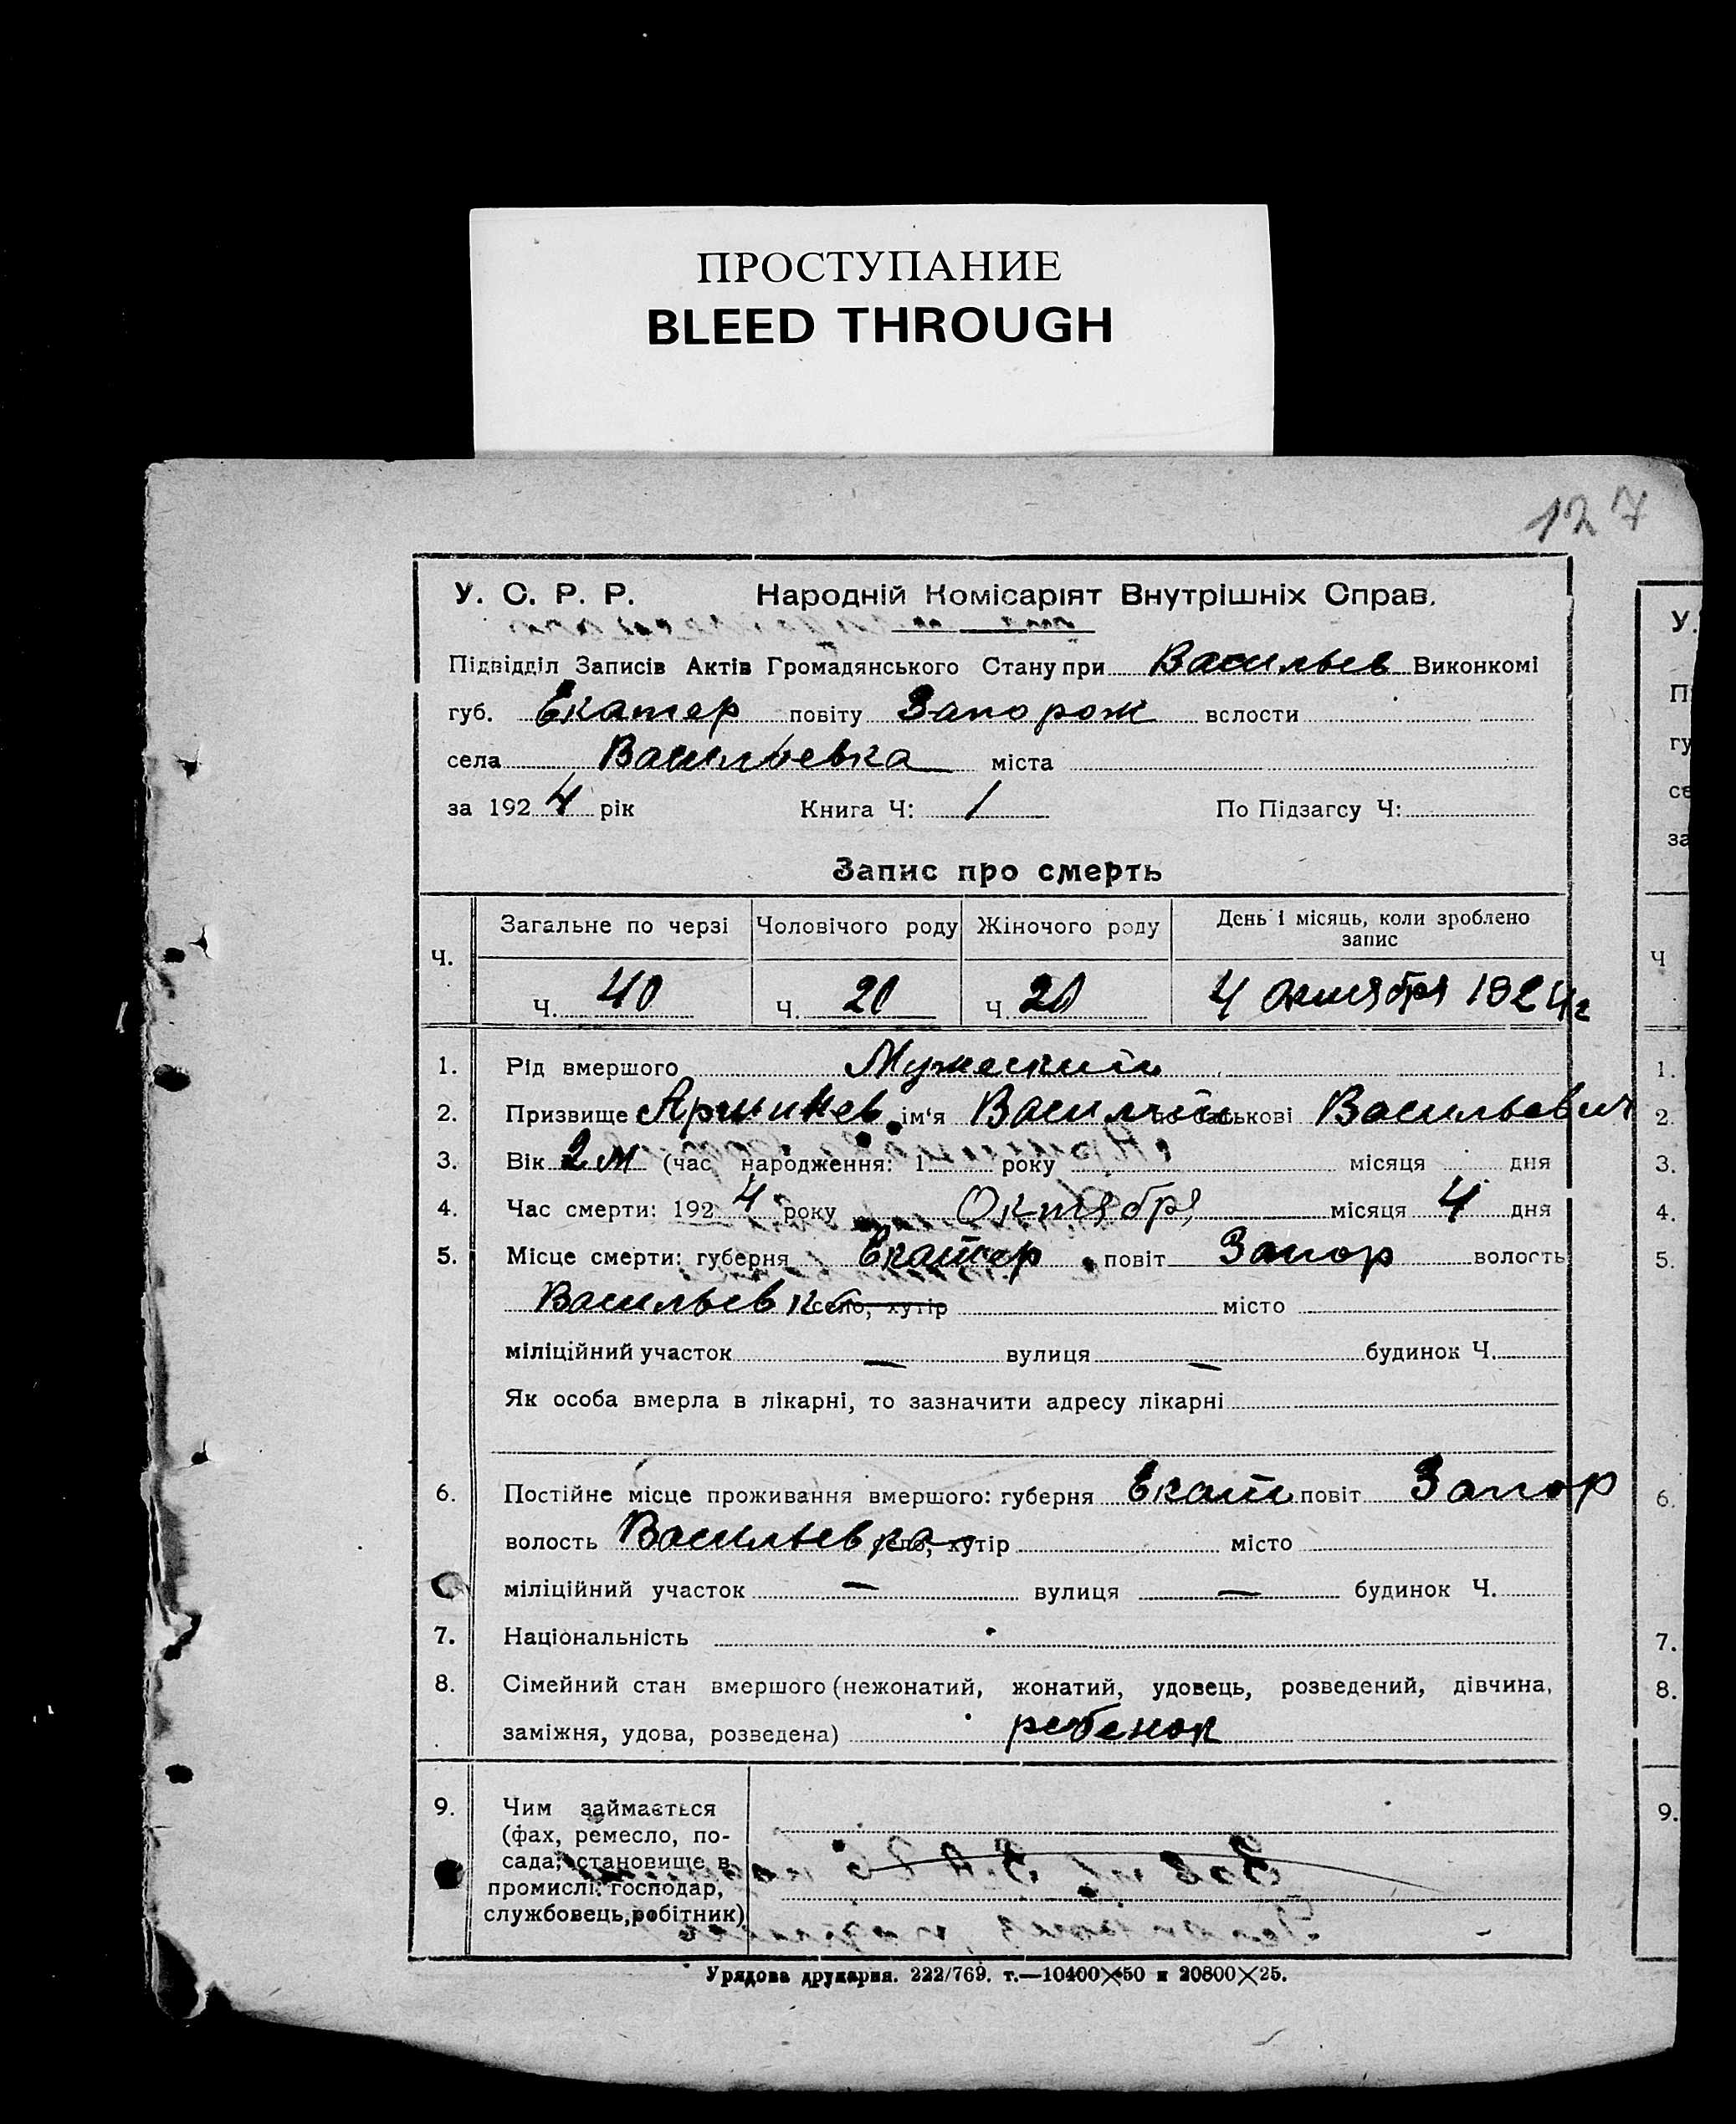 ПРОСТУПАНИЕ
BLEED THROUGH
127
У. С. Р. Р. Народній Комісаріят Внутрішніх Справ.
Підвідділ Записів Актів Громадянського Стану при Васильев Виконкомі
губ. Екатер повіту Запорож вслости
села Васильевка міста
за 1924 рік Книга Ч: 1 По Підзагсу Ч:
Запис про смерть
Ч. Загальне по черзі Чоловічого роду Жіночого роду День і місяць, коли зроблено запис
Ч. 40 Ч. 20 Ч. 20 4 октября 1924 г
1. Рід вмершого Мужеский
2. Призвище Аршинев ім‘я Василий по батькові Васильевич
3. Вік 2 м (час народження: 1 року місяця дня
4. Час смерти: 1924 року Октября місяця 4 дня
5. Місце смерти: губерня Екатер повіт Запор волость
Васильевка село, хутір місто
міліційний участок — вулиця — будинок Ч.
Як особа вмерла в лікарні, то зазначити адресу лікарні
6. Постійне місце проживання вмершого: губерня Екат повіт Запор
волость Васильевка село, хутір місто
міліційний участок — вулиця — будинок Ч.
7. Національність
8. Сімейний стан вмершого (нежонатий, жонатий, удовець, розведений, дівчина,
заміжня, удова, розведена) ребенок
9. Чим займається
(фах, ремесло, по-
сада, становище в
промислі: господар,
службовець, робітник)
Урядова друкарня. 222/769. т.—10400✕50 и 20800✕25.
У.
П
гу
се
за
Ч
1.
2.
3.
4.
5.
6.
7.
8.
9.